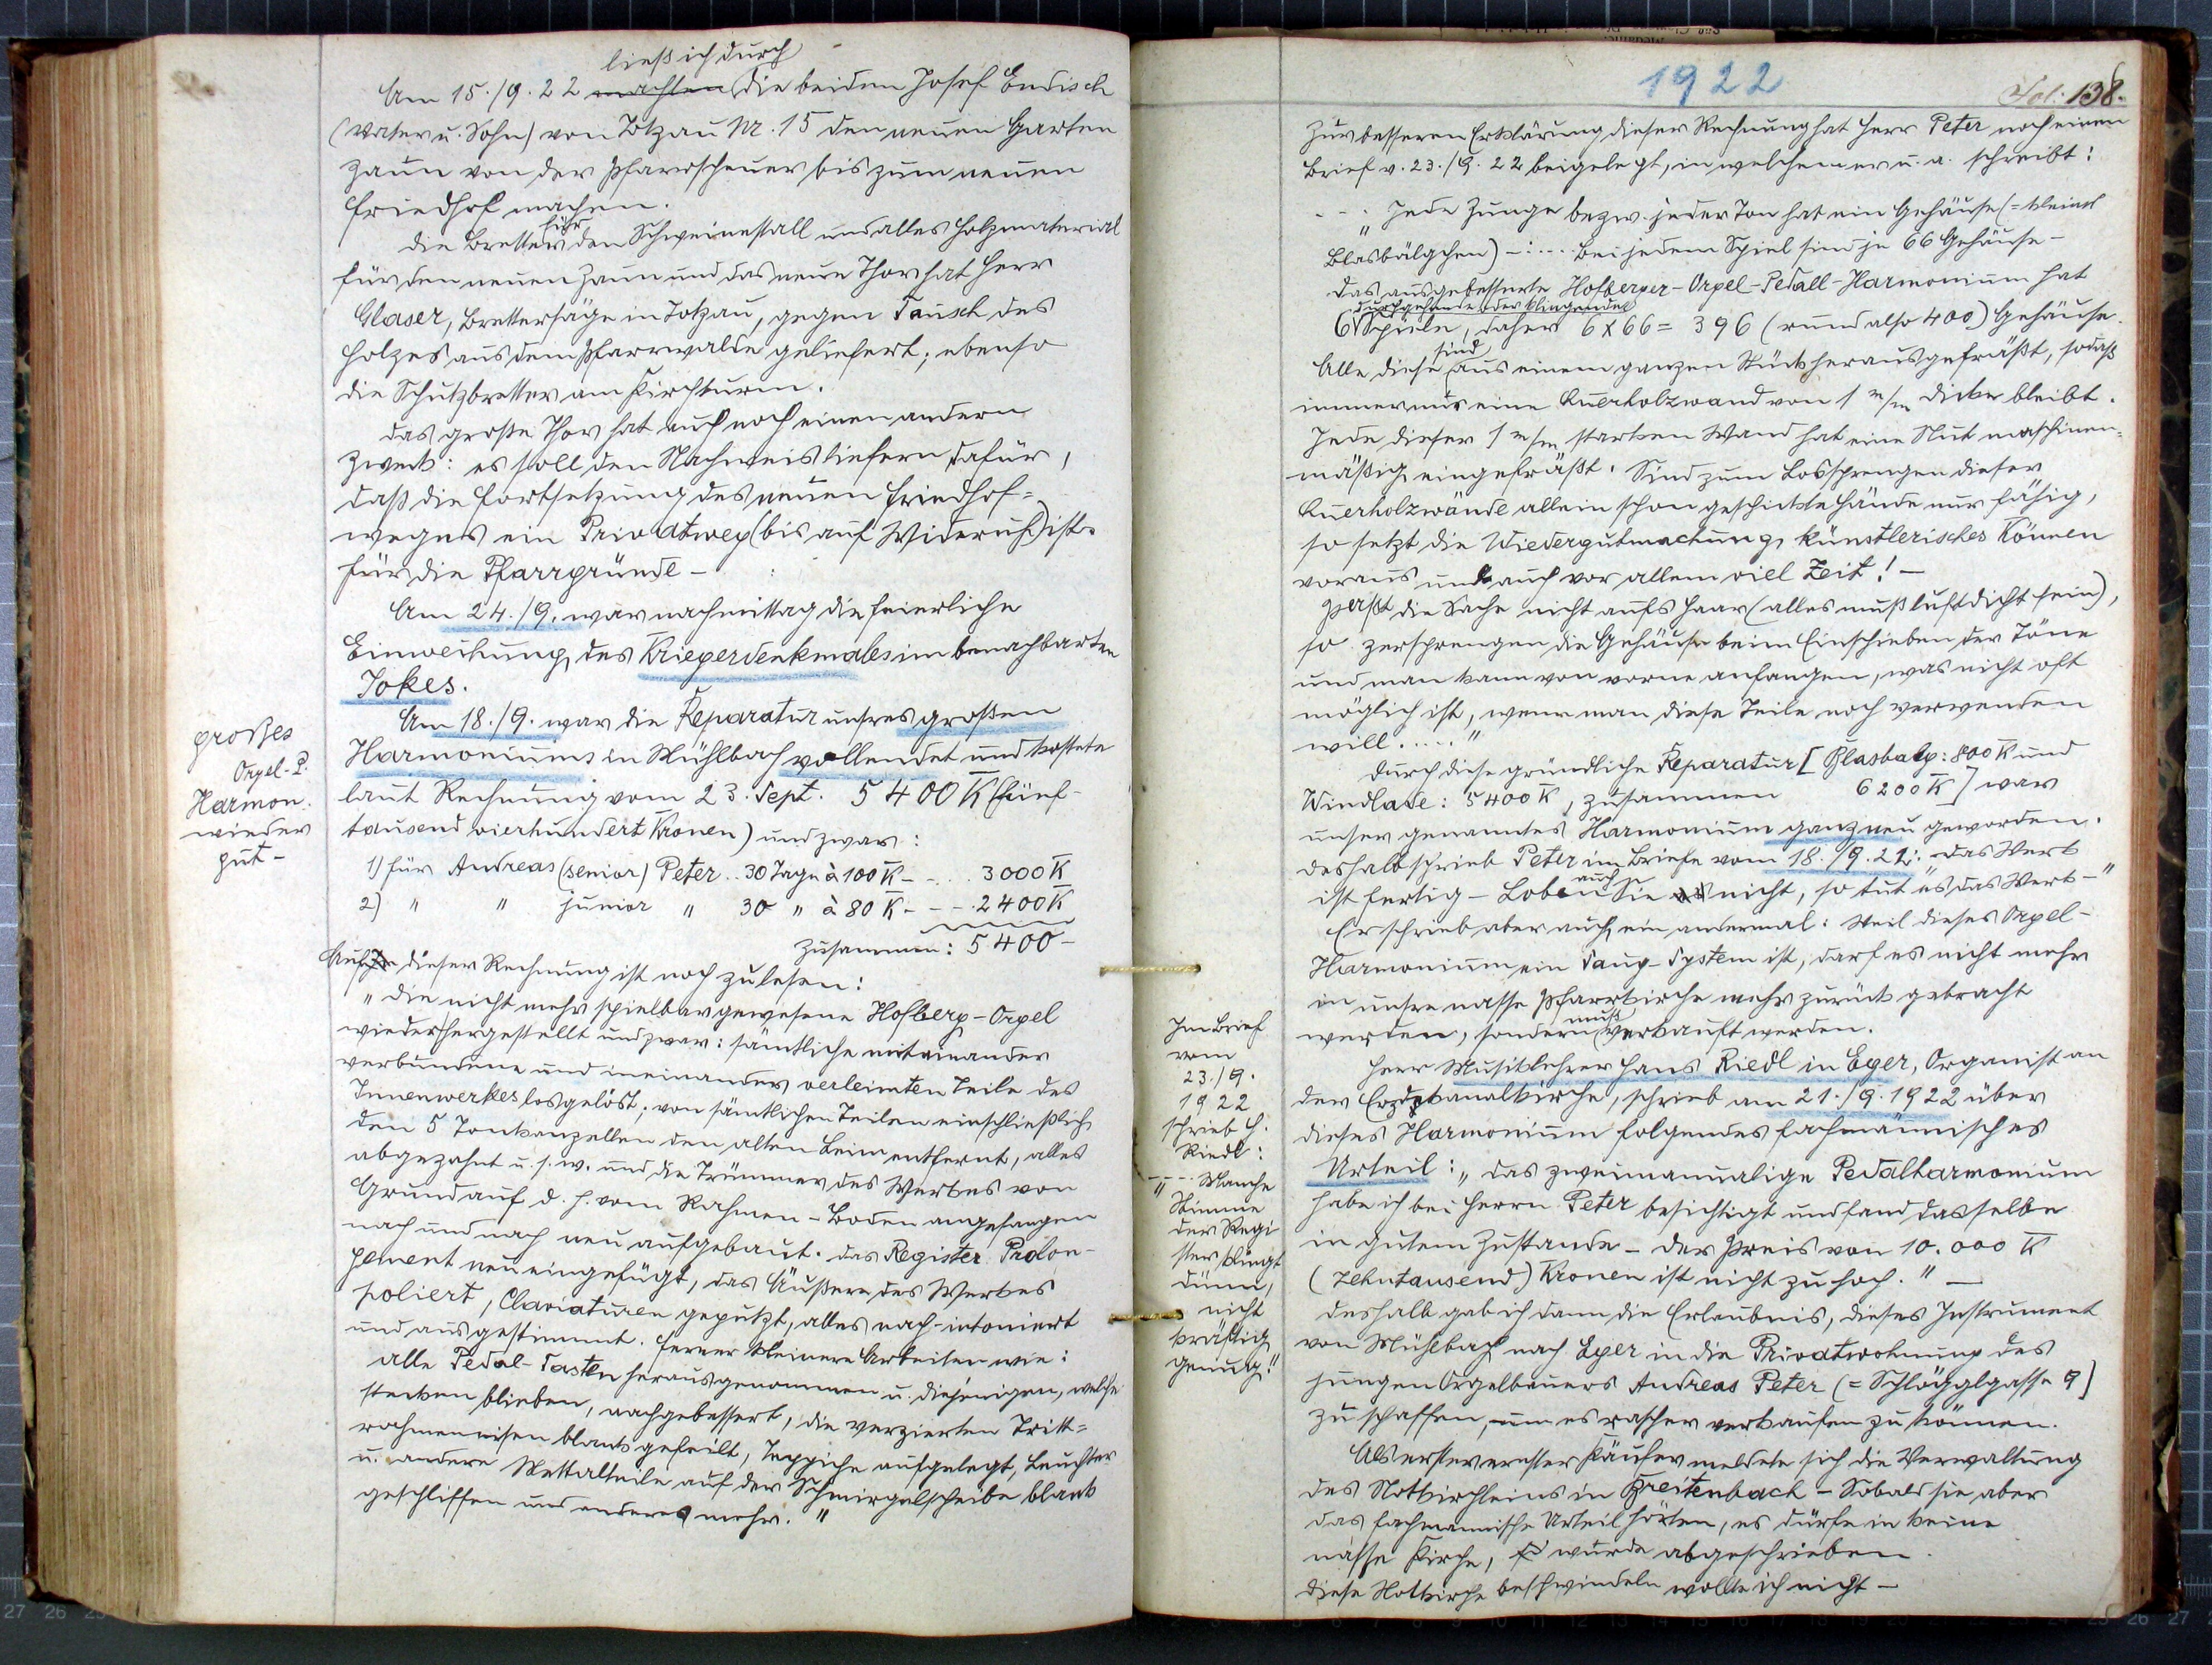 ließ ich durch
Am 15./9.22 machten die beiden Josef Endisch
(Vater u. Sohn) von Totzau Nr. 15 den neuen Garten
zaun von der Pfarrscheuer bis zum neuen
Friedhof machen.
für
Die Bretter den Schweinestall und alles Holzmaterial
für den neuen Zaun und das neue Thor hat Herr
Glaser, Brettersäge in Totzau, gegen Tausch des
Holzes aus dem Pfarrwalde geliefert; ebenso
die Schutzbretter am Kirchturm.
Das große Thor hat auch noch einen andern
Zweck: es soll den Nachweis liefern dafür,
daß die Fortsetzung des neuen Friedhof=
weges ein Privatweg (bis auf Wideruf) ist.
für die Pfarrgründe –
Am 24./9. war nachmittag die feierliche
Einweihung des Kriegerdenkmales im benachbarten
Jokes.
Am 18./9. war die Reparatur unsres großen
Harmoniums in Mühlbach vollendet und kostete
laut Rechnung vom 23. Sept. 5400 K (fünf-
tausend vierhundert Kronen) und zwar:
1) für Andreas (senior) Peter .. 30 Tage à 100 K - - . . 3000 K
2) " " junior " 30 " à 80 K - - - . 2400 K
Zusammen: 5400 –
Auf dieser Rechnung ist noch zu lesen:
„Die nicht mehr spielbar gewesene Hofberg-Orgel
wieder hergestellt und zwar: sämtliche miteinander
verbundene und ineinander verleimten Teile des
Innenwerkes losgelöst; von sämtlichen Teilen einschließlich
den 5 Tonkanzellen den alten Leim entfernt, alles
abgezahnt u. s. w. und die Trümmer des Werkes von
Grund auf d. h. vom Rahmen-Boden angefangen
nach und nach neu aufgebaut. Das Register Prolon-
gement neu eingefügt, das Äußere des Werkes
poliert, Claviaturen geputzt, alles nach-intoniert
und ausgestimmt. Ferner kleinere Arbeiten wie:
alle Pedal-Tasten herausgenommen u. diejenigen, welche
stecken blieben, nachgebessert, die verzierten Tritt=
rahmeneisen blank gefeilt, Teppiche aufgelegt, Leuchter
u. andere Mettalteile auf der Schmirgelscheibe blank
geschliffen und anderes mehr."
großes
Orgel-P.
Harmon.
wieder
gut –
1922
Fol: 138.
Zur besseren Erklärung dieser Rechnung hat Herr Peter noch einen
Brief v. 23./9.22 beigelegt, in welchem er u. a. schreibt:
„ - - - Jede Zunge bezw. jeder Ton hat ein Gehäuse (= kleines
Blasbälgchen) – : .... Bei jedem Spiel sind je 66 Gehäuse –
Das ausgebesserte Hofberger-Orgel-Pedall-Harmonium hat
durchgehende oder klingende
6 Spiele, daher 6 x 66 = 396 (rund also 400) Gehäuse.
sind
Alle diese aus einem ganzen Stück herausgefräßt, sodaß
immer nur eine Querholzwand von 1 m/m Dicke bleibt.
Jede dieser 1 m/m starken Wand hat eine Nut maschinen=
mäßig eingefräßt. Sind zum Lossprengen dieser
Querholzwände allein schon geschickte Hände nur fähig,
so setzt die Wiedergutmachung künstlerisches Können
voraus und auch vor allem viel Zeit! –
Paßt die Sache nicht aufs Haar (alles muß luftdicht sein),
so zersprengen die Gehäuse beim Einschieben der Töne
und man kann von vorne anfangen, was nicht oft
möglich ist, wenn man diese Teile noch verwenden
will. . . . ."
Durch diese gründliche Reparatur [Blasbalg: 800 K und
Windlade: 5400 K, zusammen 6200 K] war
unser genanntes Harmonium ganz neu geworden.
Deshalb schrieb Peter im Briefe vom 18./9.22: „Das Werk
auch
ist fertig – Loben Sie es nicht, so tut es das Werk –"
Er schrieb aber auch ein andermal: Weil dieses Orgel-
Harmonium ein Saug-System ist, darf es nicht mehr
in unsre nasse Pfarrkirche mehr zurück gebracht
muß
werden, sondern verkauft werden.
Herr Musiklehrer Hans Riedl in Eger, Organist an
der Erzdekanalkirche, schrieb am 21./9.1922 über
dieses Harmonium folgendes fachmännisches
Urteil: „Das zweimanualige Pedalharmonium
habe ich bei Herrn Peter besichtigt und fand dasselbe
in gutem Zustande – der Preis von 10.000 K
(zehntausend) Kronen ist nicht zu hoch." –
Deshalb gab ich dann die Erlaubnis, dieses Instrument
von Mühlbach nach Eger in die Privatwohnung des
jungen Orgelbauers Andreas Peter (= Schlögglgasse 9)
zu schaffen, um es rascher verkaufen zu können.
Als erster ernster Käufer meldete sich die Verwaltung
des Notkirchleins in Breitenbach – Sobald sie aber
das fachmännische Urteil hörten, es dürfe in keine
nasse Kirche, wurde abgeschrieben.
Diese Notkirche beschwindeln wollte ich nicht –
Im Brief
vom
23./9.
1922
schrieb H.
Riedl:
„ - - - Manche
Stimme
der Regi
ster klingt
dünn,
nicht
kräftig
genug!"